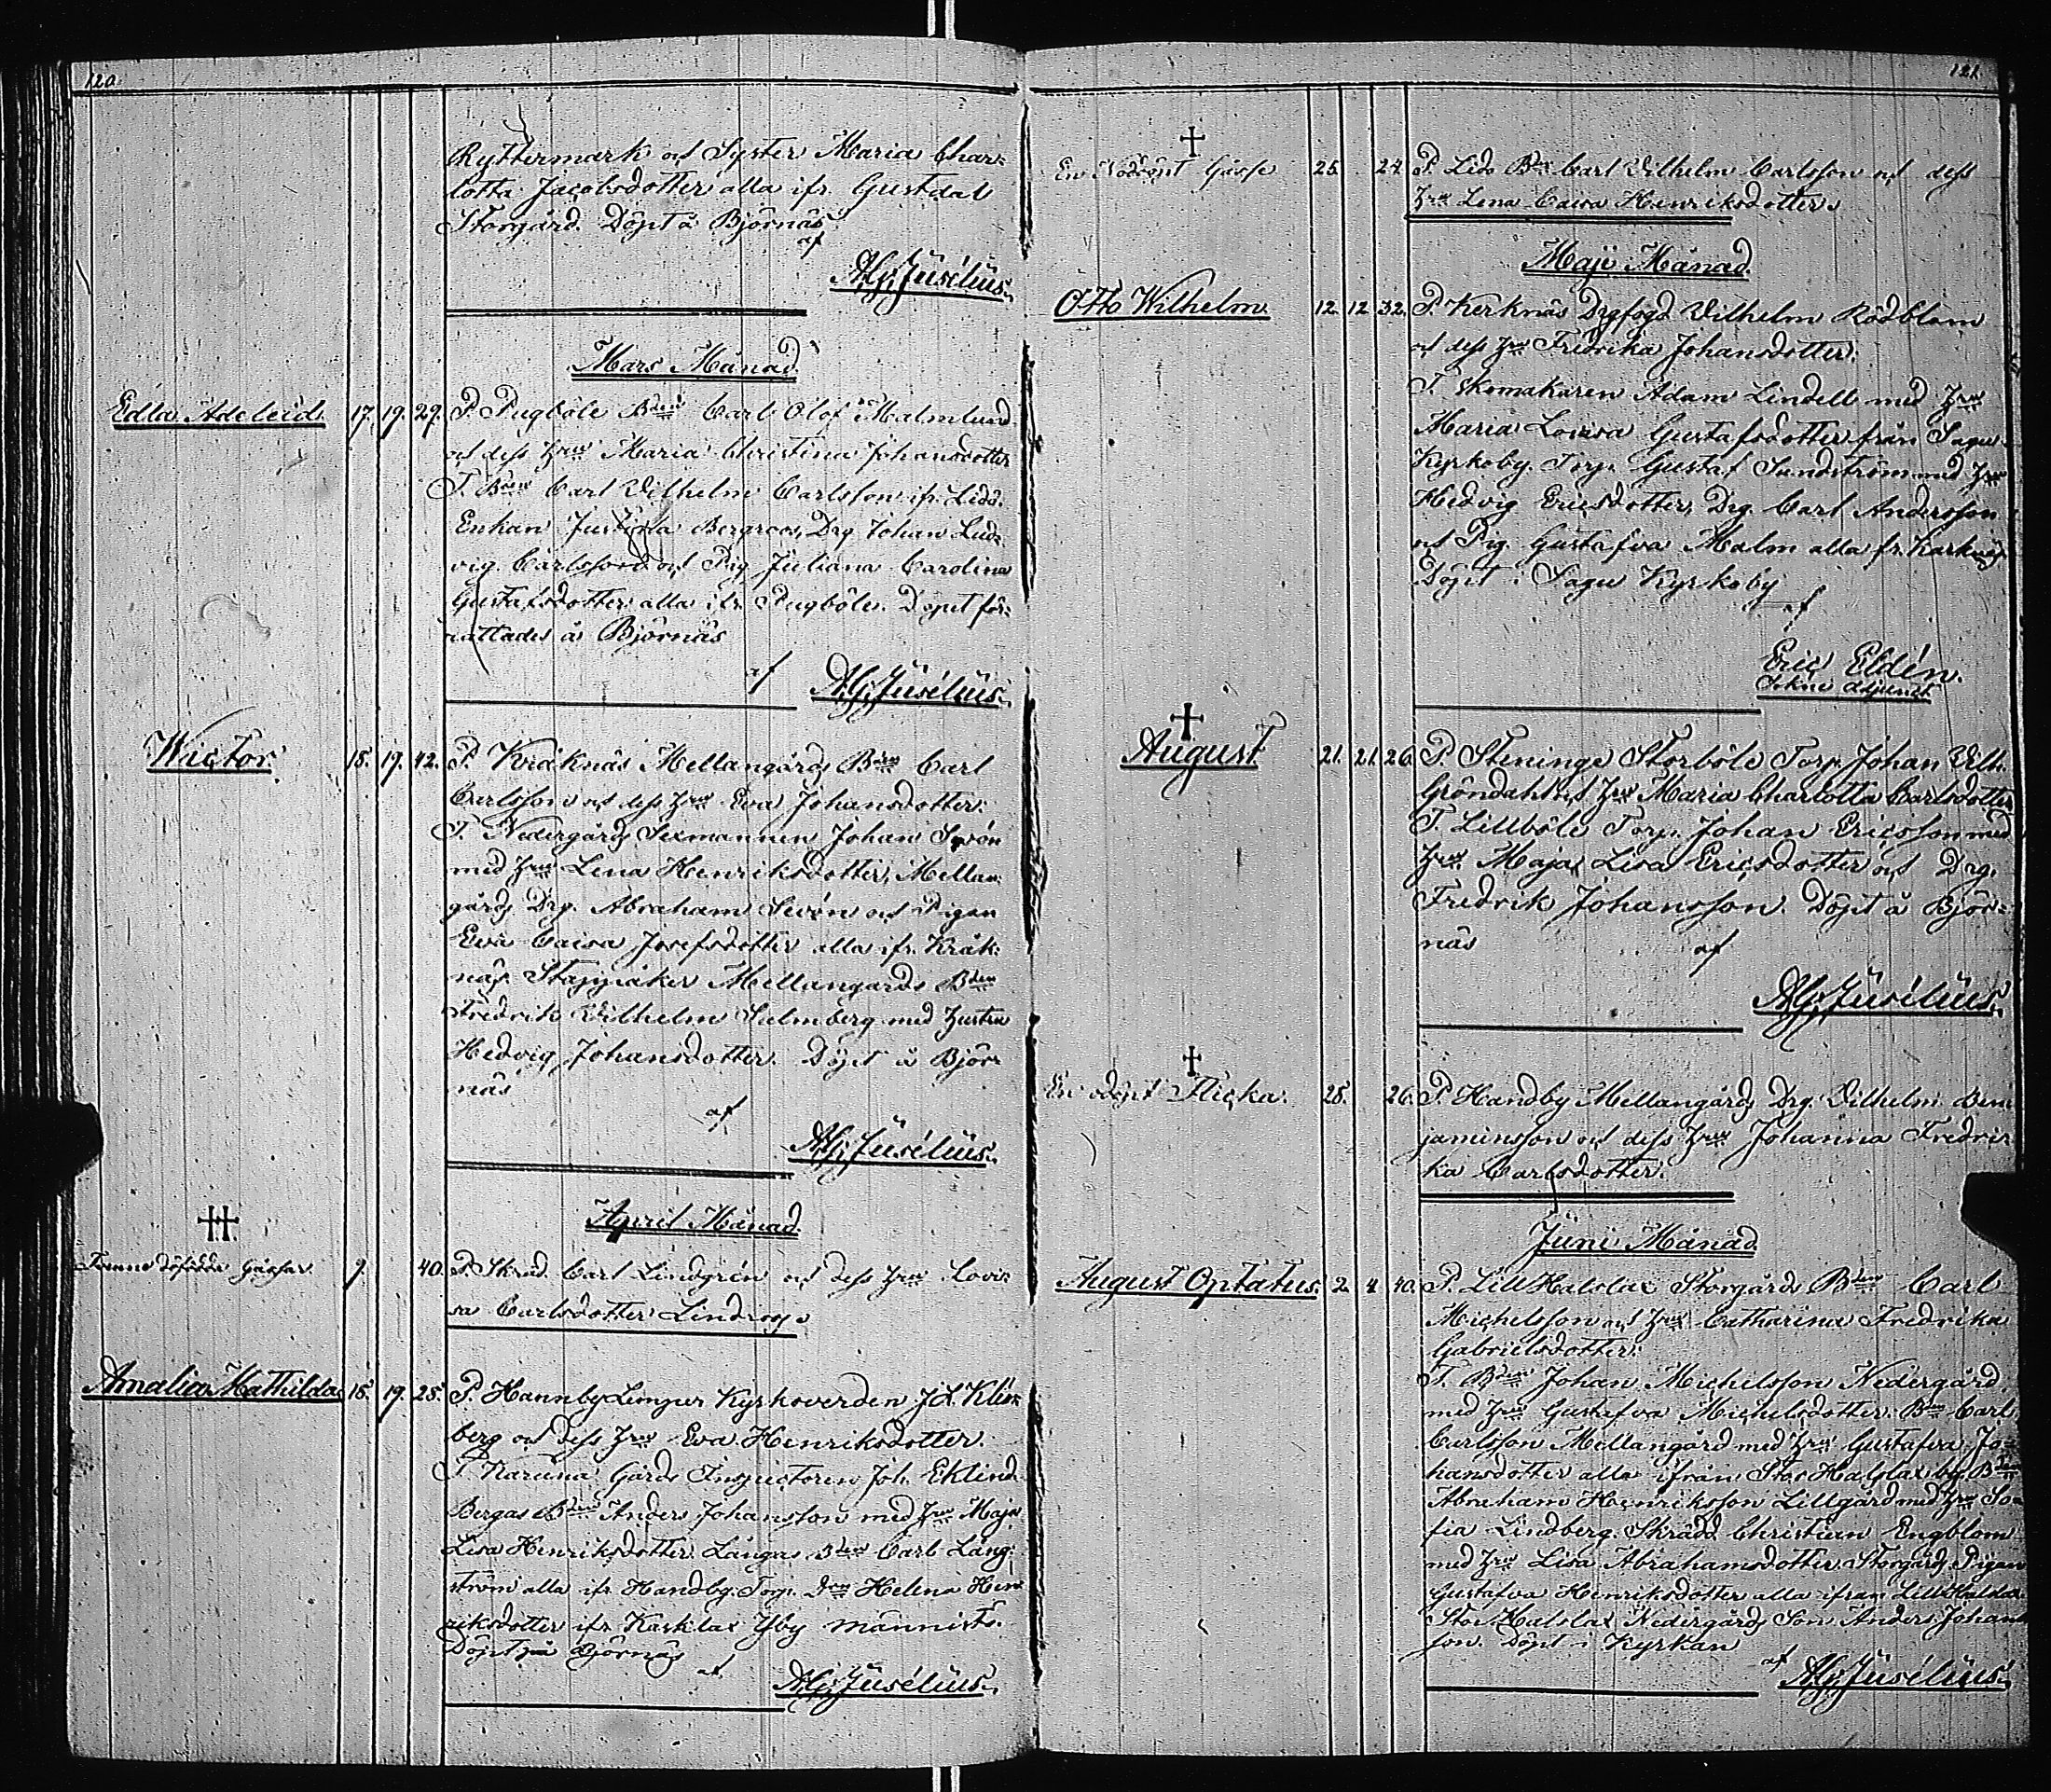 120.
Ryttermark och Syster Maria Char-
lotta Jacobsdotter alla ifr. Gustdal
Storgård. Döpt å Björnäs
af
Alg. Jusélius.
Mars Månad.
Edla Adeleid. 17. 19. 29. P. Pugböle Bden Carl Olof Malmlund
och dess hru Maria Christina Johansdotter
T. Bden Carl Vilhelm Carlsson ifr. Lidö.
Enkan Justina Bergroos, Drg Johan Lud-
vig Carlsson och Pig. Juliana Carolina
Gustafsdotter alla ifr. Pugböle. Döpet för-
rättades å Björnäs
af Alg. Jusélius.
Wictor. 18. 19. 42. P. Kråknäs Mellangårds Bden Carl
Carlsson och dess hru Eva Johansdotter.
T. Nedergårds Sexmannen Johan Sevón
med hru Lena Henriksdotter, Mellan-
gårds Drg. Abraham Sevón och Pigan
Eva Caisa Josefsdotter alla ifr. Kråk-
näs. Stappåker Mellangårds Bden
Fredrik Vilhelm Salmberg med hustru
Hedvig Johansdotter. Döpt å Björ-
näs
af
Alg. Jusélius.
April Månad.
Tvenne döfödda gåssar. 9. 40. P. Skrad. Carl Lindgrén och dess hru Lovi-
sa Carlsdotter Lindroos
Amalia Mathilda 18. 19. 25. P. Hannby Limpur Kyrkoverden J.A. Klin-
berg och dess hru Eva Henriksdotter.
T. Karuna Gårds Inspectoren Joh. Eklind
Bergas Bden Anders Johansson med hru Maja
Lisa Henriksdotter. Långas Bden Carl Lång-
ström alla ifr. Handby. Torp. Helena Hen-
riksdotter ifr. Karklax Yby
Döpt på Björnäs
af Alg. Jusélius.
121.
En Nödöpt Gåsse 25. 24. P. Lidö Bden Carl Vilhelm Carlsson och dess
hru Lena Caisa Henriksdotter
Maji Månad.
Otto Wilhelm. 12. 12. 32. P. Kerknäs Drgfogd Vilhelm Rödblom
och dess hru Fredrika Johansdotter.
T. Skomakaren Adam Lindell med hru
Maria Lovisa Gustafsdotter från Sagu
Kyrkoby. Torp. Gustaf Sundström med hru
Hedvig Ericsdotter, Drg. Carl Andersson
och Pig. Gustafva Malm alla fr. Karknäs
Döpt i Sagu Kyrkoby
af
Eric Eldén.
adjunct
August 21. 21. 26. P. Steninge Storböle Torp. Johan Vilh.
Gröndahl och hru Maria Charlotta Carlsdotter
T. Lillböle Torp. Johan Ericsson med
hru Maja Lisa Ericsdotter och Drg.
Fredrik Johansson. Döpt å Björ-
näs af
Alg. Jusélius.
En odöpt Flicka. 28. 26. P. Handby Mellangårds Drg. Vilhelm Ben-
jaminsson och dess hru Johanna Fredri-
ka Carlsdotter.
Juni Månad
August Optatus. 2. 4. 40. P. Lill Halslax Storgårds Bden Carl
Michelsson och hru Catharina Fredrika
Gabrielsdotter.
T. Bden Johan Michelsson Nedergård
med hru Gustafva Michelsdotter. Bden Carl
Carlsson Mellangård med hru Gustafva Jo-
hansdotter alla ifrån Stor Halslax by. Bden
Abraham Henriksson Lillgård med hru So-
fia Lindberg. Skrädd. Christian Engblom
med hru Lisa Abrahamsdotter. Storgårds Pigan
Gustafva Henriksdotter alla ifrån Lill Halslax
Stor Halslax Nedergårds Son Anders Johans-
son. Döpt i Kyrkan
af Alg. Jusélius.